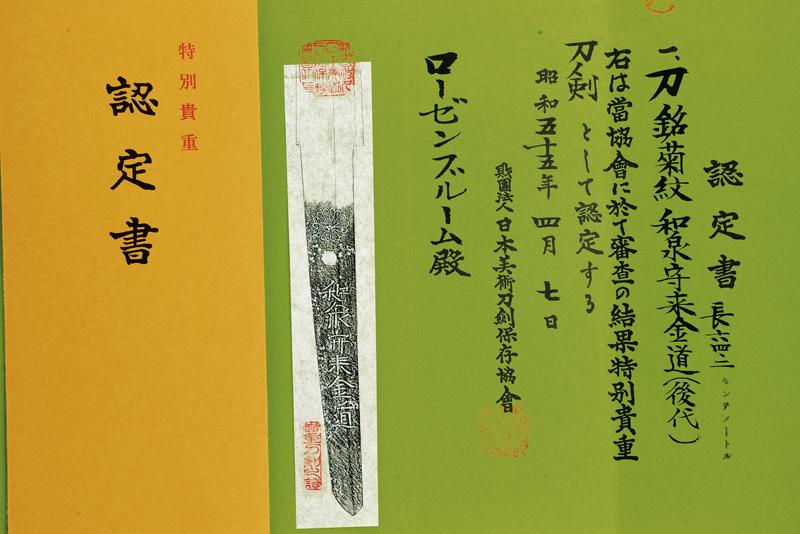 認定書
長六四・二センチメートル
一、刀 銘 菊紋 和泉守来金道(後代)
右は當協會に於て審査の結果特別貴重
刀劍として認定する
昭和五十五年四月七日
財團法人日本美術刀劍保存協會
ローゼンブルーム殿
和泉守来金道
貴重刀剣之證
特別貴重
認定書